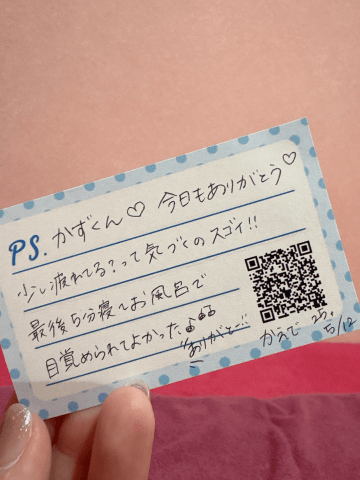 PS. かずくん♡ 今日もありがとう♡
少し疲れてる?って気づくのスゴイ!!
最後5分寝てお風呂で
目覚められてよかった♪♫
ありがと〜!!
かえで 25.
5/12